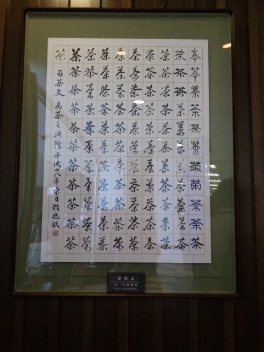 茶茶茶茶茶茶茶茶茶茶茶
茶茶茶茶茶茶茶茶茶茶茶
茶茶茶茶茶茶茶茶茶茶茶
茶茶茶茶茶茶茶茶茶茶茶
茶茶茶茶茶茶茶茶茶茶茶
茶茶茶茶茶茶茶茶茶茶茶
茶茶茶茶茶茶茶茶茶茶茶
茶茶茶茶茶茶茶茶茶茶茶
茶茶茶茶茶茶茶茶茶茶茶
茶 百茶文 為茶之興隆 平成八年